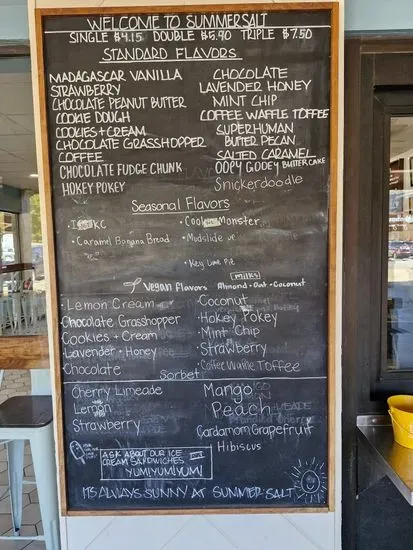 WELCOME TO SUMMERSALT
SINGLE $4.15 DOUBLE $5.90 TRIPLE $7.50
STANDARD FLAVORS
MADAGASCAR VANILLA
STRAWBERRY
CHOCOLATE PEANUT BUTTER
COOKIE DOUGH
COOKIES + CREAM
CHOCOLATE GRASSHOPPER
COFFEE
CHOCOLATE FUDGE CHUNK
HOKEY POKEY
CHOCOLATE
LAVENDER HONEY
MINT CHIP
COFFEE WAFFLE TOFFEE
SUPERHUMAN
BUTTER PECAN
SALTED CARAMEL
OOEY GOOEY BUTTERCAKE
Snickerdoodle
Seasonal Flavors
• KC
• Caramel Banana Bread
• Cookie Monster
• Mudslide
• Key Lime Pie
Vegan Flavors
MILKS
Almond • Oat • Coconut
• Lemon Cream
• Chocolate Grasshopper
• Cookies + Cream
• Lavender + Honey
• Chocolate
• Coconut
• Hokey Pokey
• Mint Chip
• Strawberry
• Coffee Waffle Toffee
Sorbet
Cherry Limeade
Lemon
Strawberry
Mango
Peach
Cardamom Grapefruit
Hibiscus
ASK ABOUT OUR ICE
CREAM SANDWICHES
YUM!YUM!YUM!
ITS ALWAYS SUNNY AT SUMMER SALT